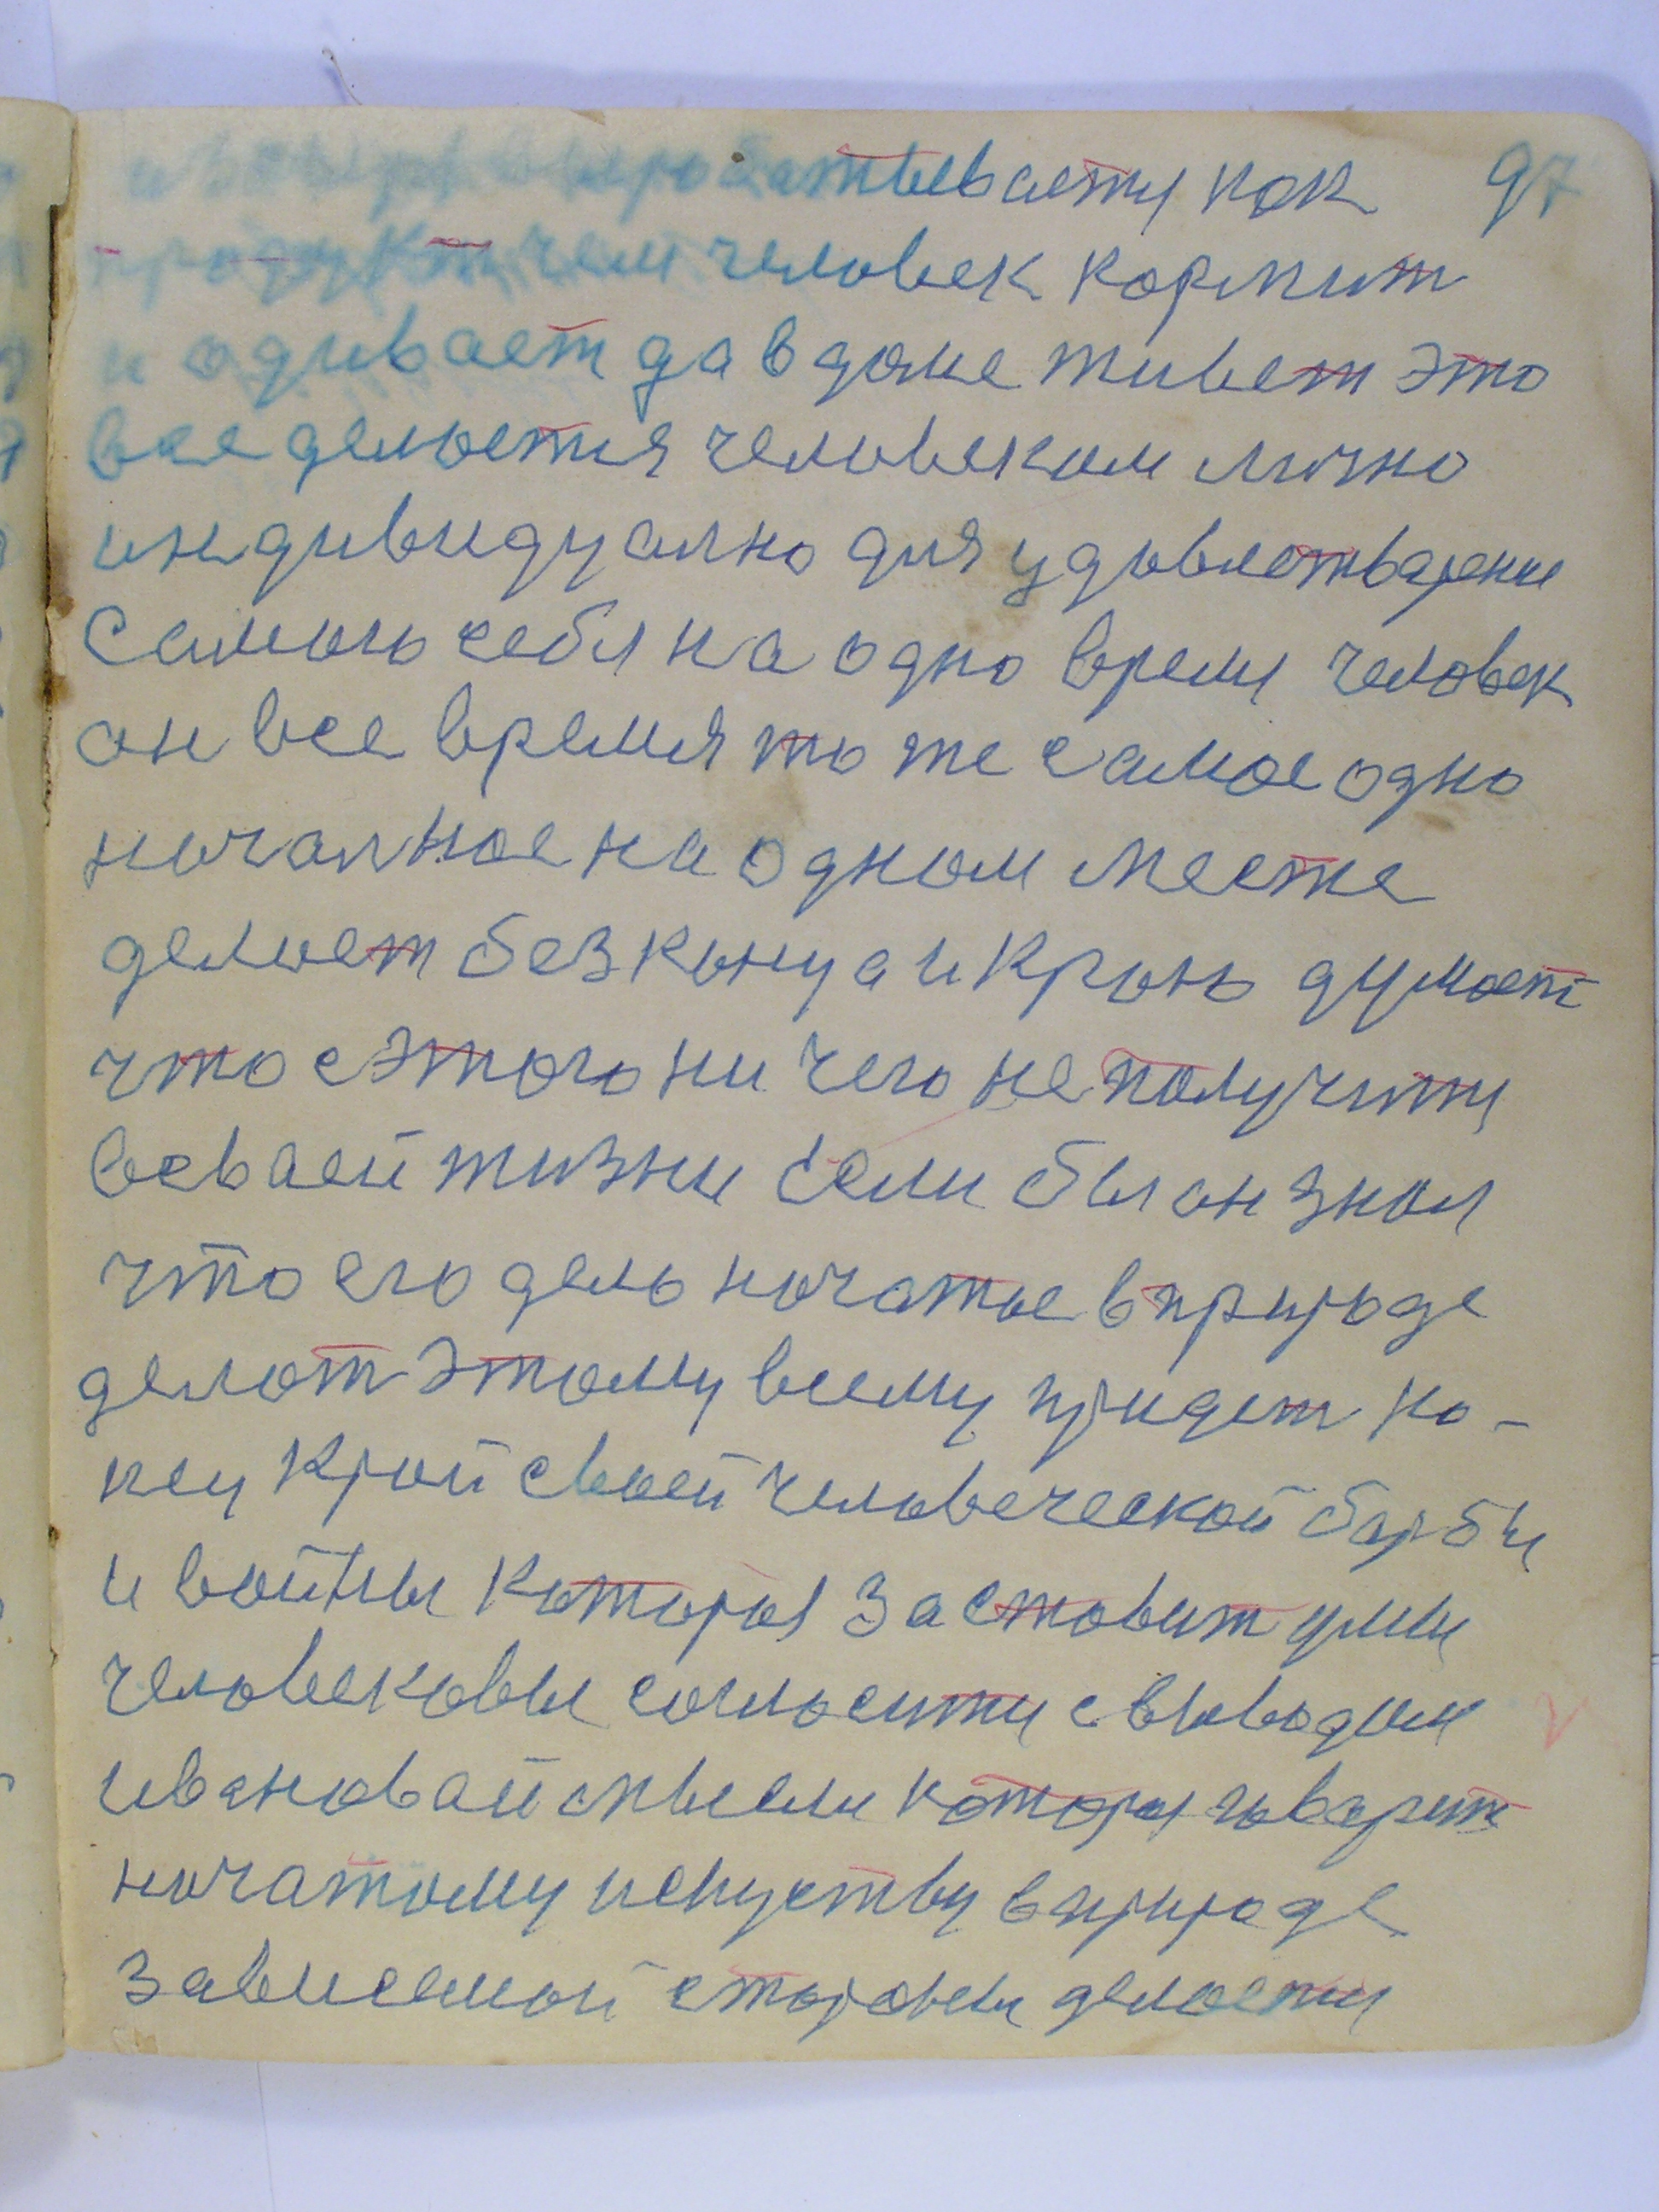 97
вырабатываетц как
продуктц чем человек кормит
и одивает да в доме живет это
все делается человеком лично
индивидуално для удовлетварени
самого себя на одно время человек
он все время то же самое одно
началное на одном месте
делает без конца и Кроно думает
что с этого ни чего не получитц
в свaей жизни Если бы он знал
что его дело начатое в природе
делат этому всему придет ко-
нец Край своей человеческой барби
и войны которая заставит умы
человековы согласитц с выводам
ивановай мысли которы говарит
начатому искуству в природе
зависемой стороны делаетц